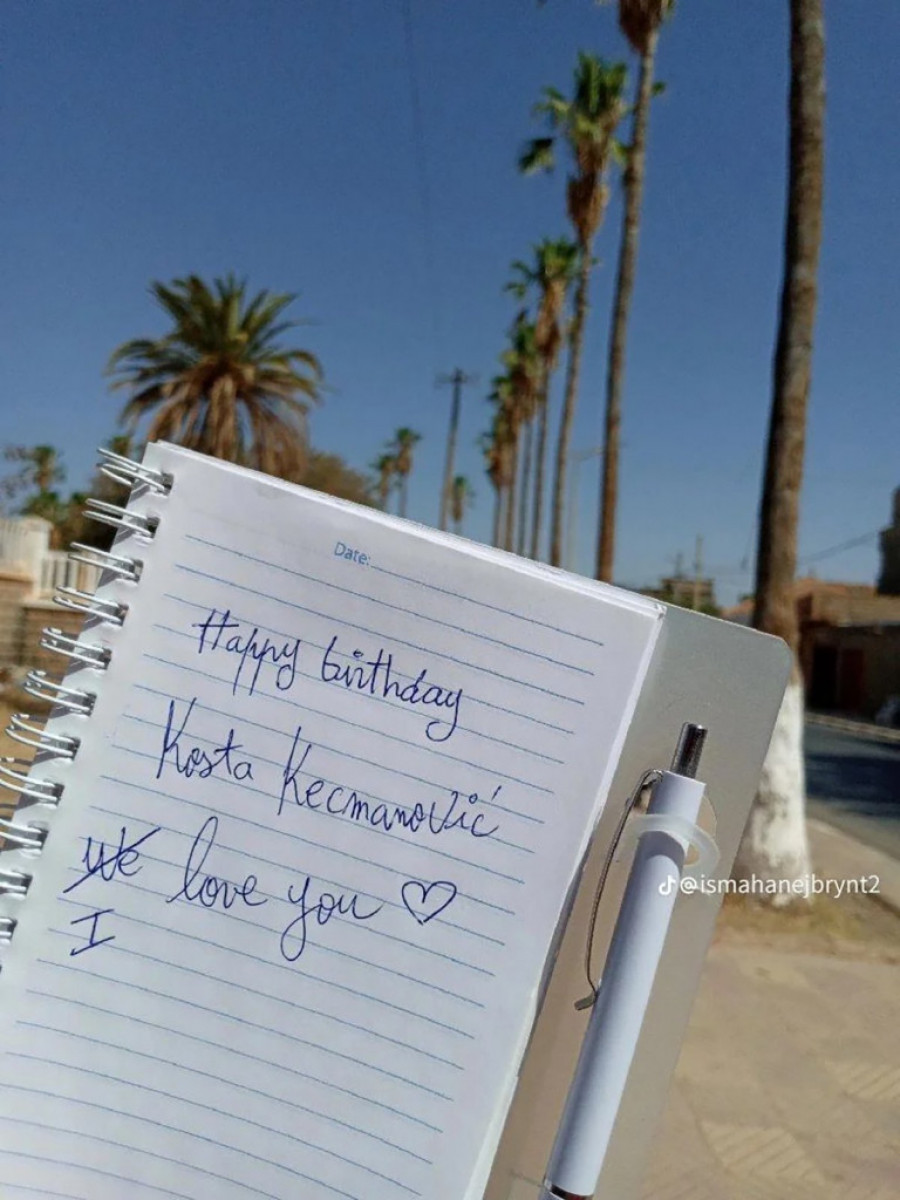 Date:
Happy birthday
Kosta Kecmanović
We love you ♡
I
@ismahanejbrynt2